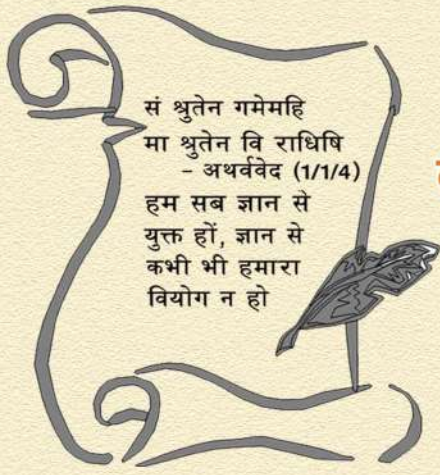 सं श्रुतेन गमेमहि
मा श्रुतेन वि राधिषि
- अथर्ववेद (1/1/4)
हम सब ज्ञान से
युक्त हों, ज्ञान से
कभी भी हमारा
वियोग न हो